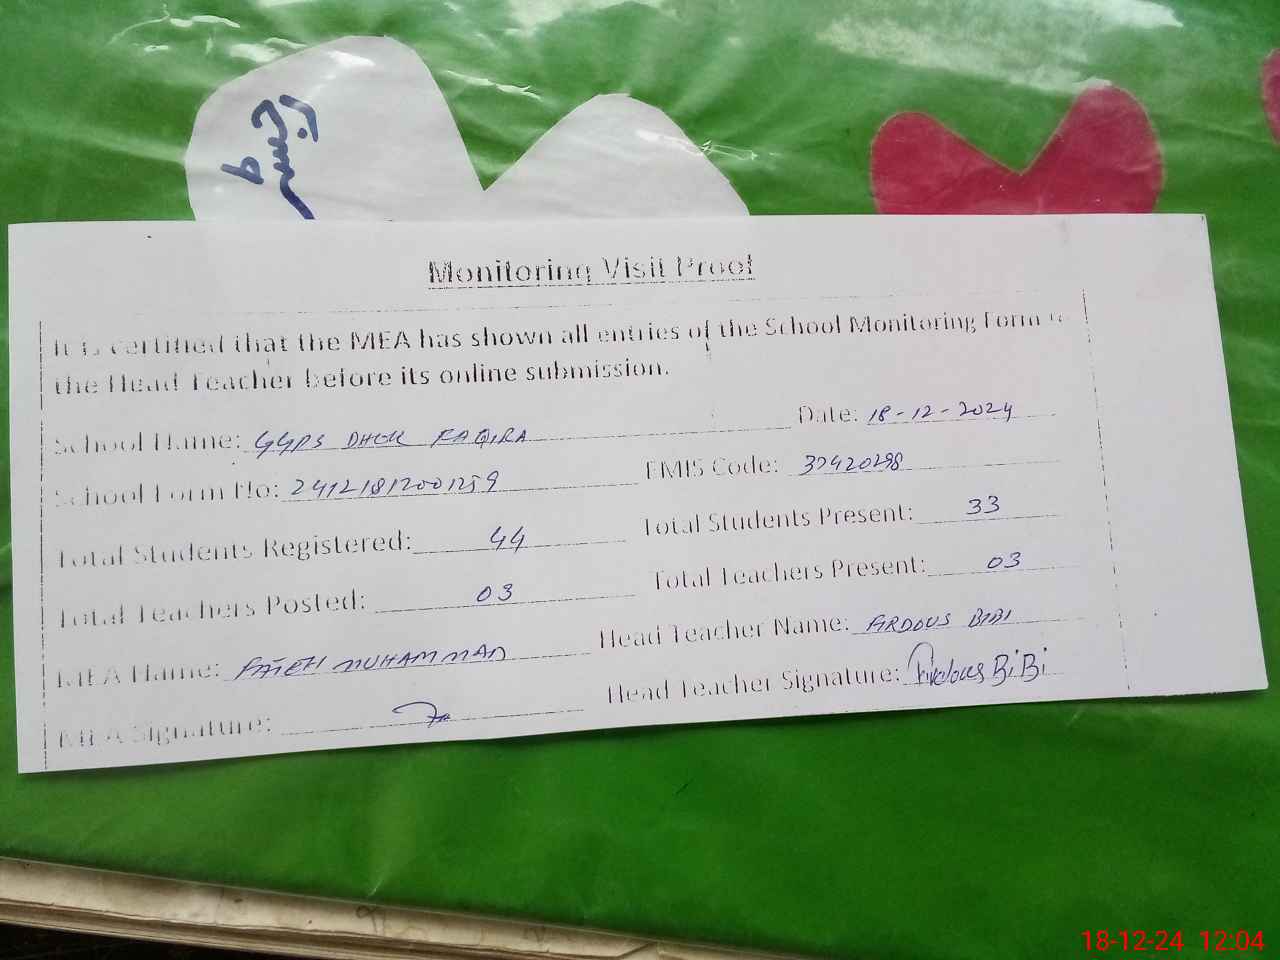 رجسٹر
Monitoring Visit Proof
It is certified that the MEA has shown all entries of the School Monitoring Form to
the Head Teacher before its online submission.
School Name: GGPS DHOK FAQIRA Date: 18-12-2024
School Form No: 24121812001259 EMIS Code: 37420298
Total Students Registered: 44 Total Students Present: 33
Total Teachers Posted: 03 Total Teachers Present: 03
MEA Name: FATEH MUHAMMAD Head Teacher Name: FIRDOUS BIBI
MEA Signature: Head Teacher Signature: Firdous BiBi
18-12-24 12:04